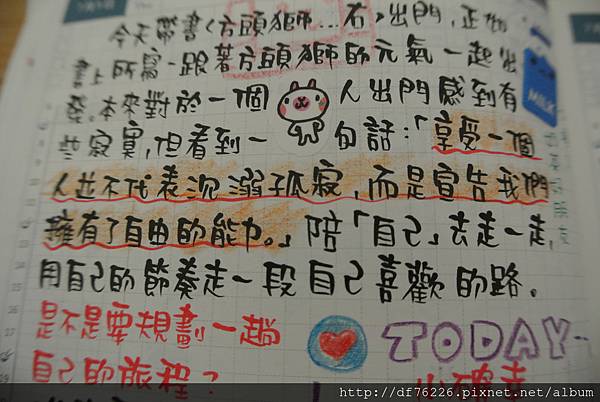 今天帶書《方頭獅...右》出門,正如
書上所寫-跟著方頭獅的元氣一起出
發,本來對於一個人出門感到有
些寂寞,但看到一句話:「享受一個
人並不代表沉溺孤寂,而是宣告我們
擁有了自由的能力。」陪「自己」去走一走,
用自己的節奏走一段自己喜歡的路。
是不是要規劃一趟
自己的旅程?
MILK
TODAY..
小確幸
http://df76226.pixnet.net/album